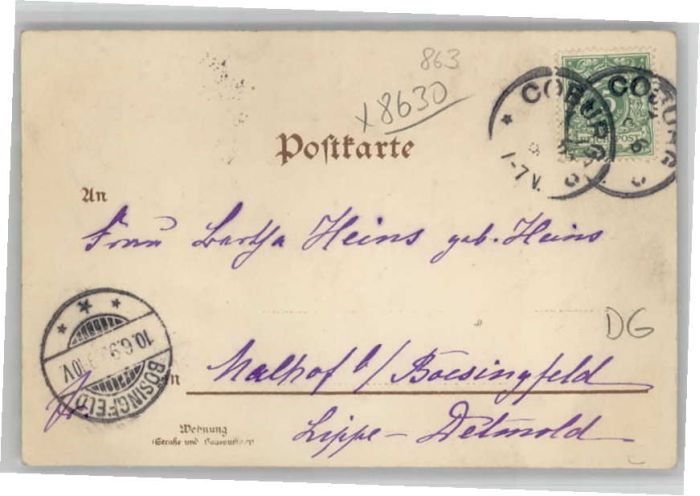 863
x8630
COBURG
COBURG
1-7V.
Postkarte
An
Frau Bertha Heins geb. Heins
DG
BÖSINGFELD
10.6.9
10V
in
Malhof b/ Boesingfeld
Wohnung
(Straße und Hausnummer)
Lippe - Detmold